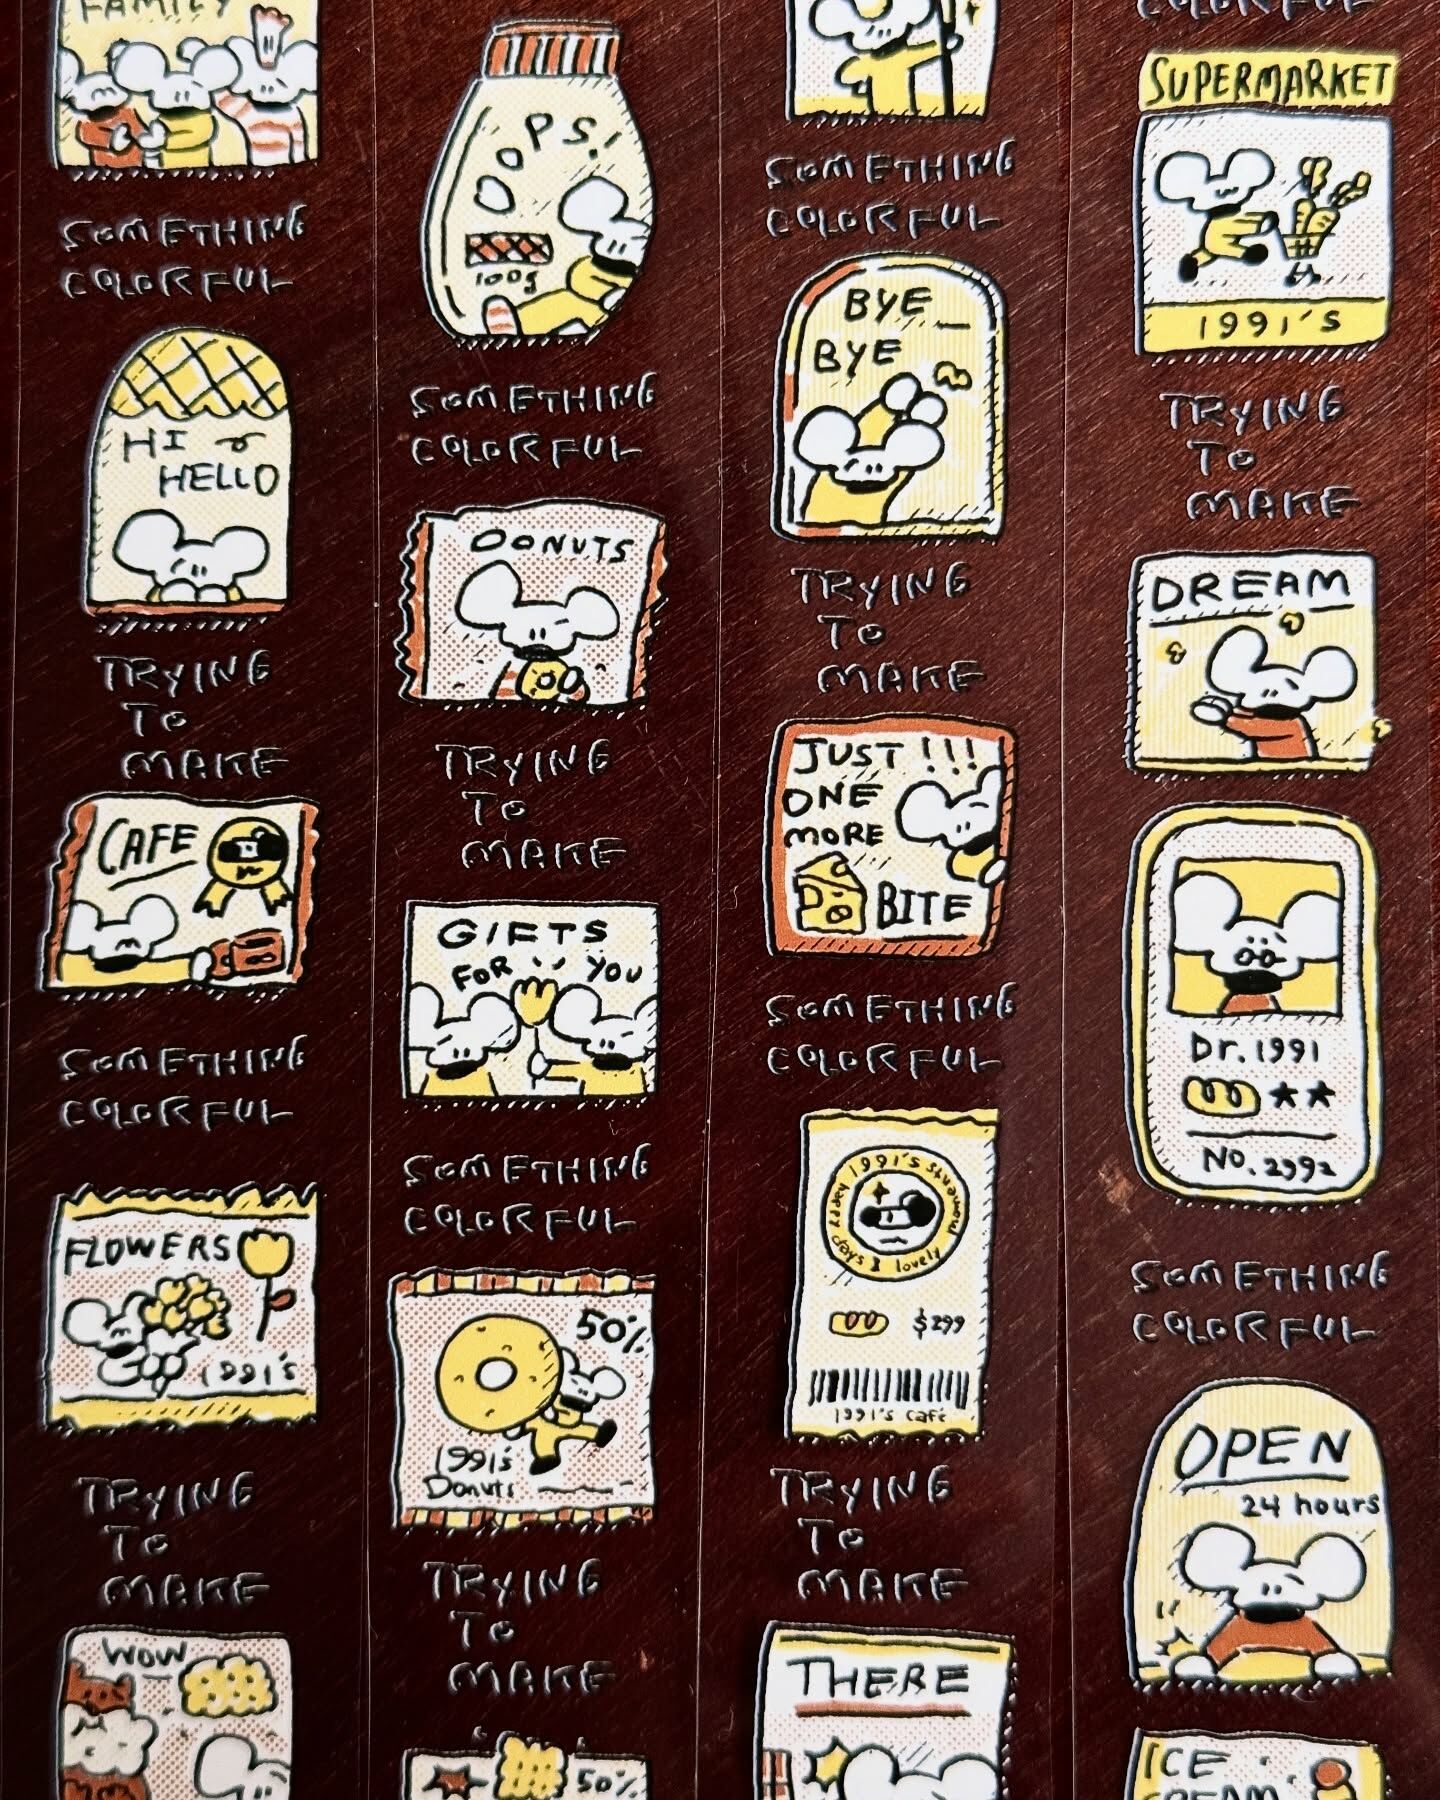 FAMILY
SOMETHING
COLORFUL
HI
HELLO
TRYING
TO
MAKE
CAFE
SOMETHING
COLORFUL
FLOWERS
1991's
TRYING
TO
MAKE
WOW
PS!
100g
SOMETHING
COLORFUL
DONUTS
TRYING
TO
MAKE
GIFTS
FOR YOU
SOMETHING
COLORFUL
50%
1991's
Donuts
TRYING
TO
MAKE
50%
SOMETHING
COLORFUL
BYE
BYE
TRYING
TO
MAKE
JUST!!!
ONE
MORE
BITE
SOMETHING
COLORFUL
1991's
happy days & lovely moments
$299
1991's Café
TRYING
TO
MAKE
THERE
COLORFUL
SUPERMARKET
1991'S
TRYING
TO
MAKE
DREAM
Dr. 1991
★★
No. 2992
SOMETHING
COLORFUL
OPEN
24 hours
ICE
CREAM